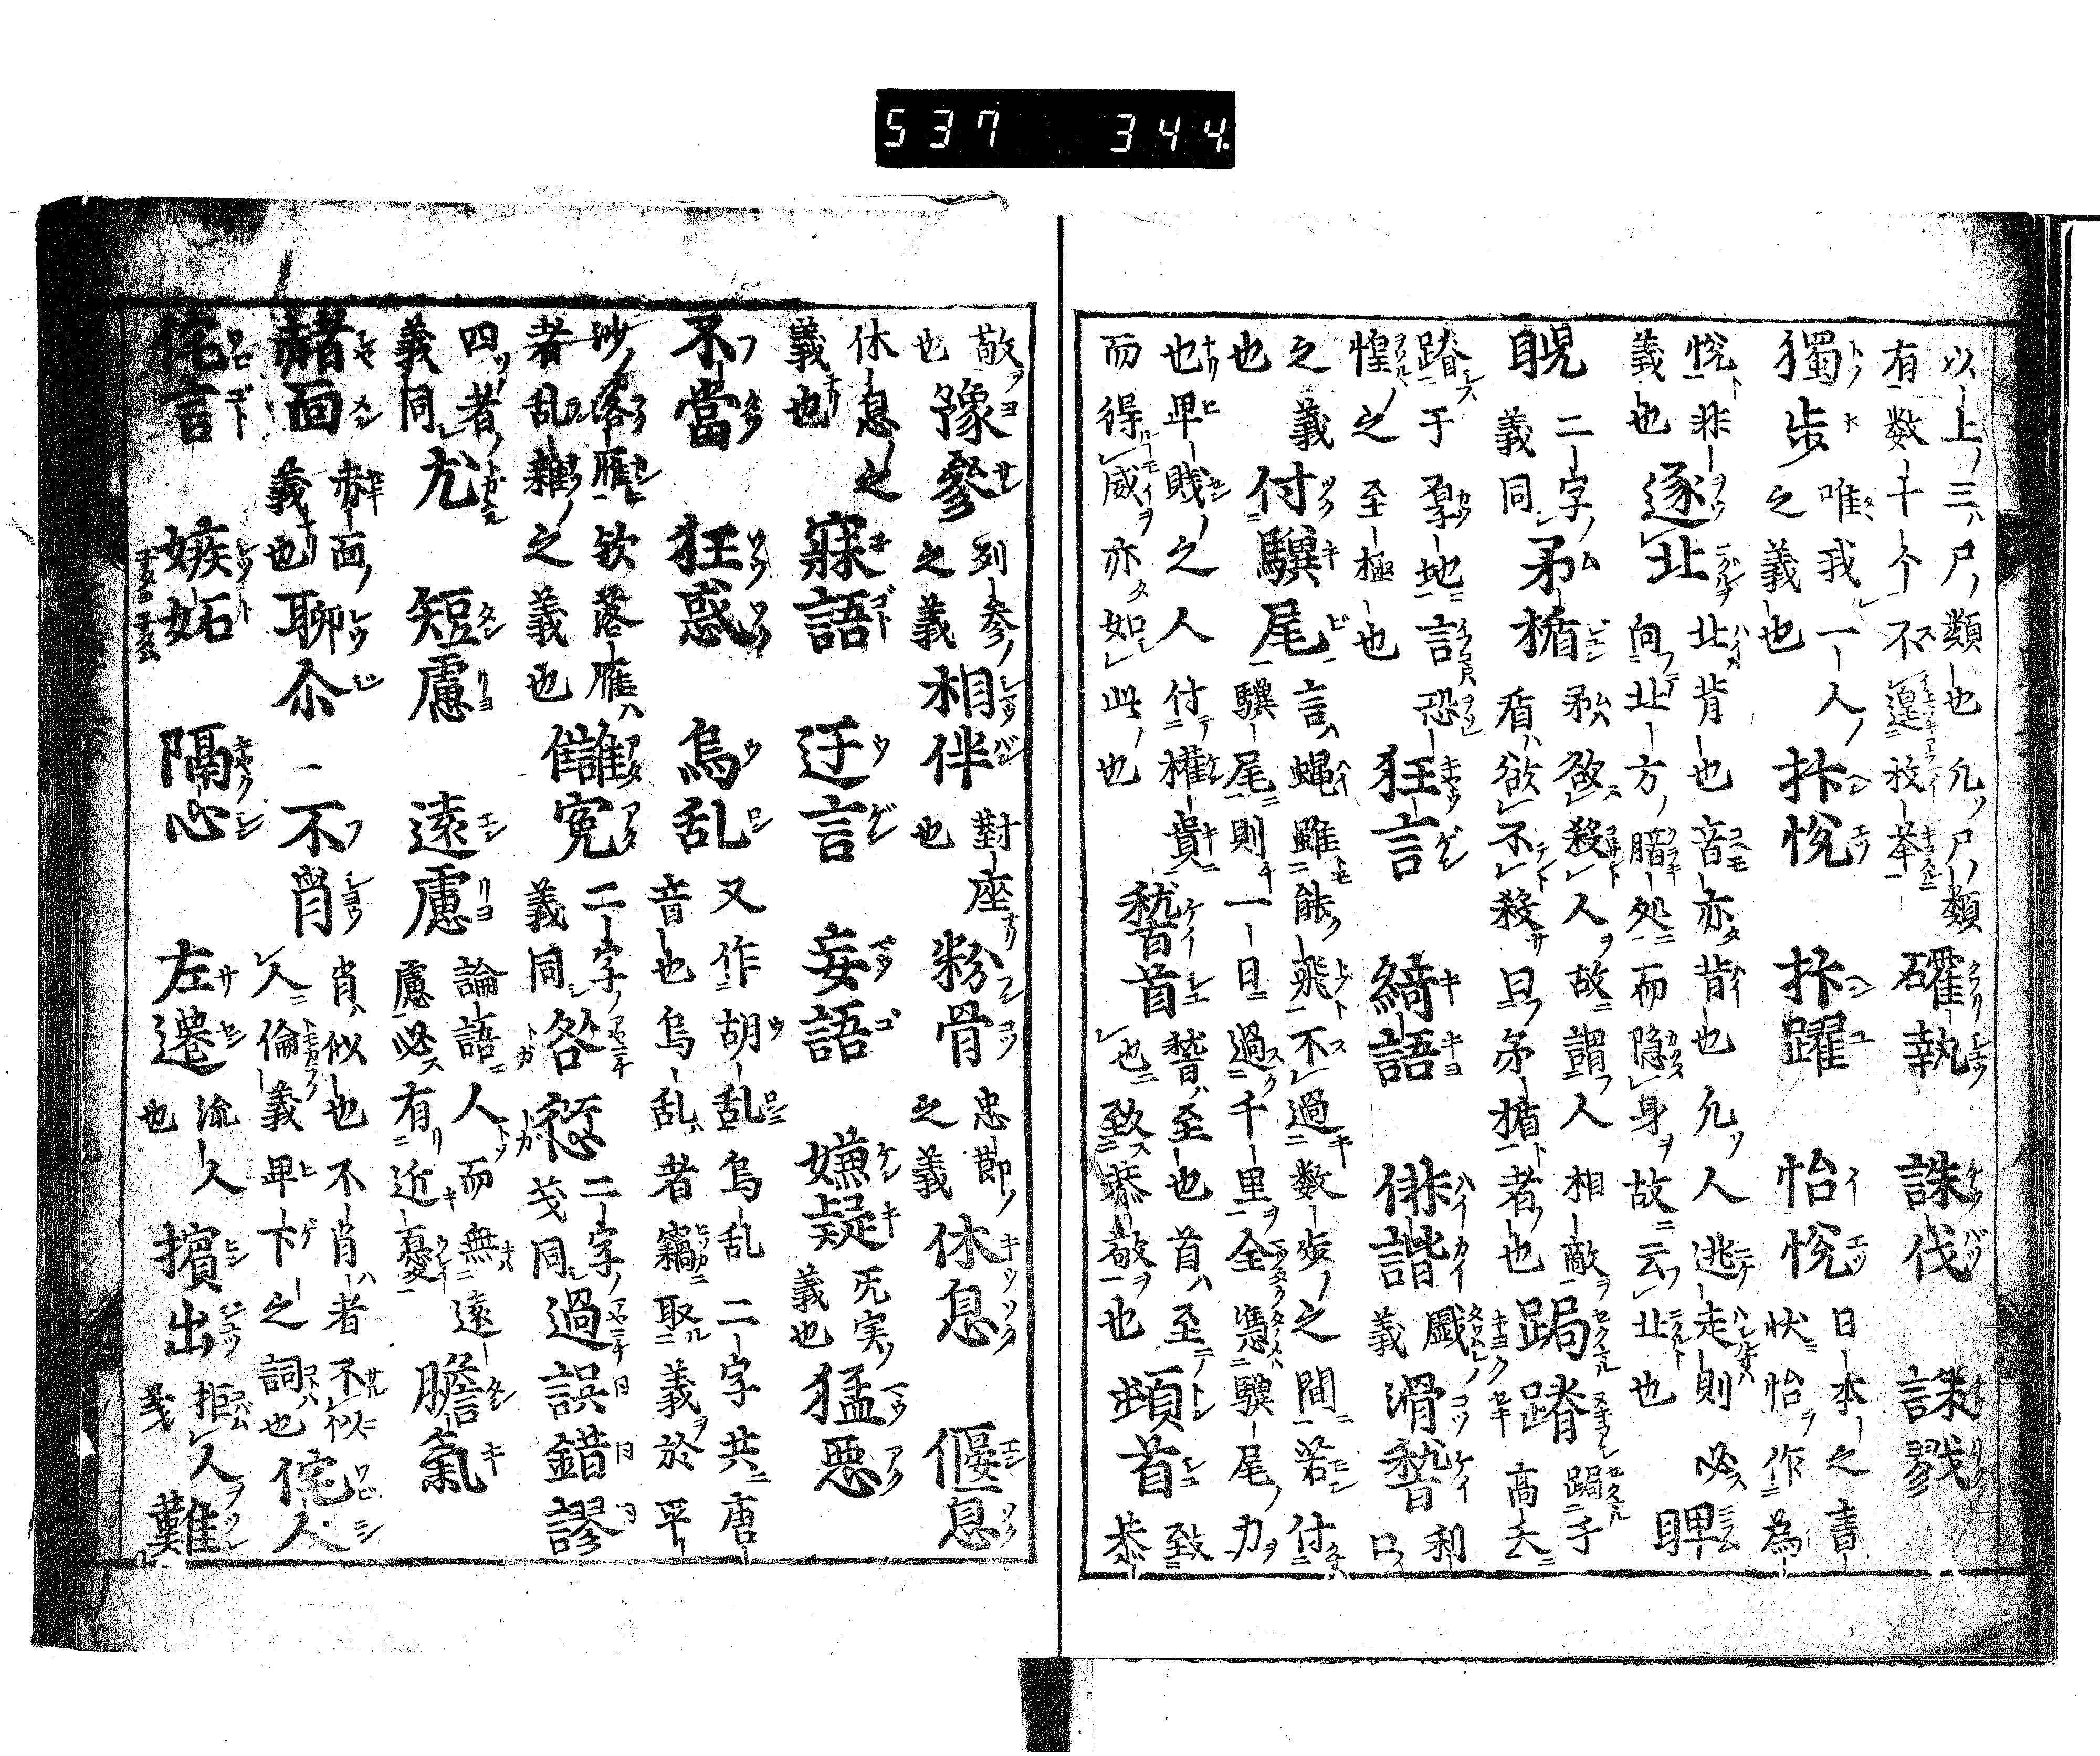 537 344.
以上三ハ尸ノ類也允ノ尸ノ類
有数十个不遑枚挙
確執 誅伐 誅戮
獨歩
唯我一人ノ
之義也
抃悦 抃躍 怡悦
日本之書
状怡ヲ作為
悦非
義也
逐北
北背也音亦背也允ソ人逃走則必
向北方ノ暗処而隠身ヲ故云北也
睥
睨
二字ノ
義同
矛楯
矛欲殺人ヲ故謂人相敵ヲ
盾ハ欲不殺曰矛楯者也
跼蹐
跼于
高天
蹐于厚地言恐
惶之至極也
狂言 綺語 俳諧
戯
義
滑稽
利
口
之義
也
付驥尾
言ハ蝿雖能飛不過数歩ノ之間若付
驥尾則一日過千里全憑驥尾ノ力ヲ
也卑賤ノ之人付権貴
而得威亦如此也
稽首
稽ハ至也首ハ至
也致恭敬ヲ也
頓首
致
恭
敬ヲ
也
豫參
列參ノ
之義
相伴
對座
也
粉骨
忠節ノ
之義
休息 偃息
休息之
義也
寐語 迂言 妄語 嫌疑
旡実ノ
義也
猛悪
不當 狂惑 烏乱
又作胡乱烏乱二字共唐
音也烏乱者竊取義ヲ於平
沙ノ落雁欤落雁ハ
者乱雑之義也
讎寃
二字ノ
義同
咎 愆
二字ノ
義同
過 誤 錯 謬
四ツノ者ノ
義同
尤 短慮 遠慮
論語人而無遠
慮必有近憂
膽氣
赭面
赤面ノ
義也
聊尓 不肖
肖ハ似也不肖ハ者不似
人倫義卑下之詞也
侘人
侘言 嫉妬 隔心 左遷
流人
也
擯出
拒人ヲ
義
難